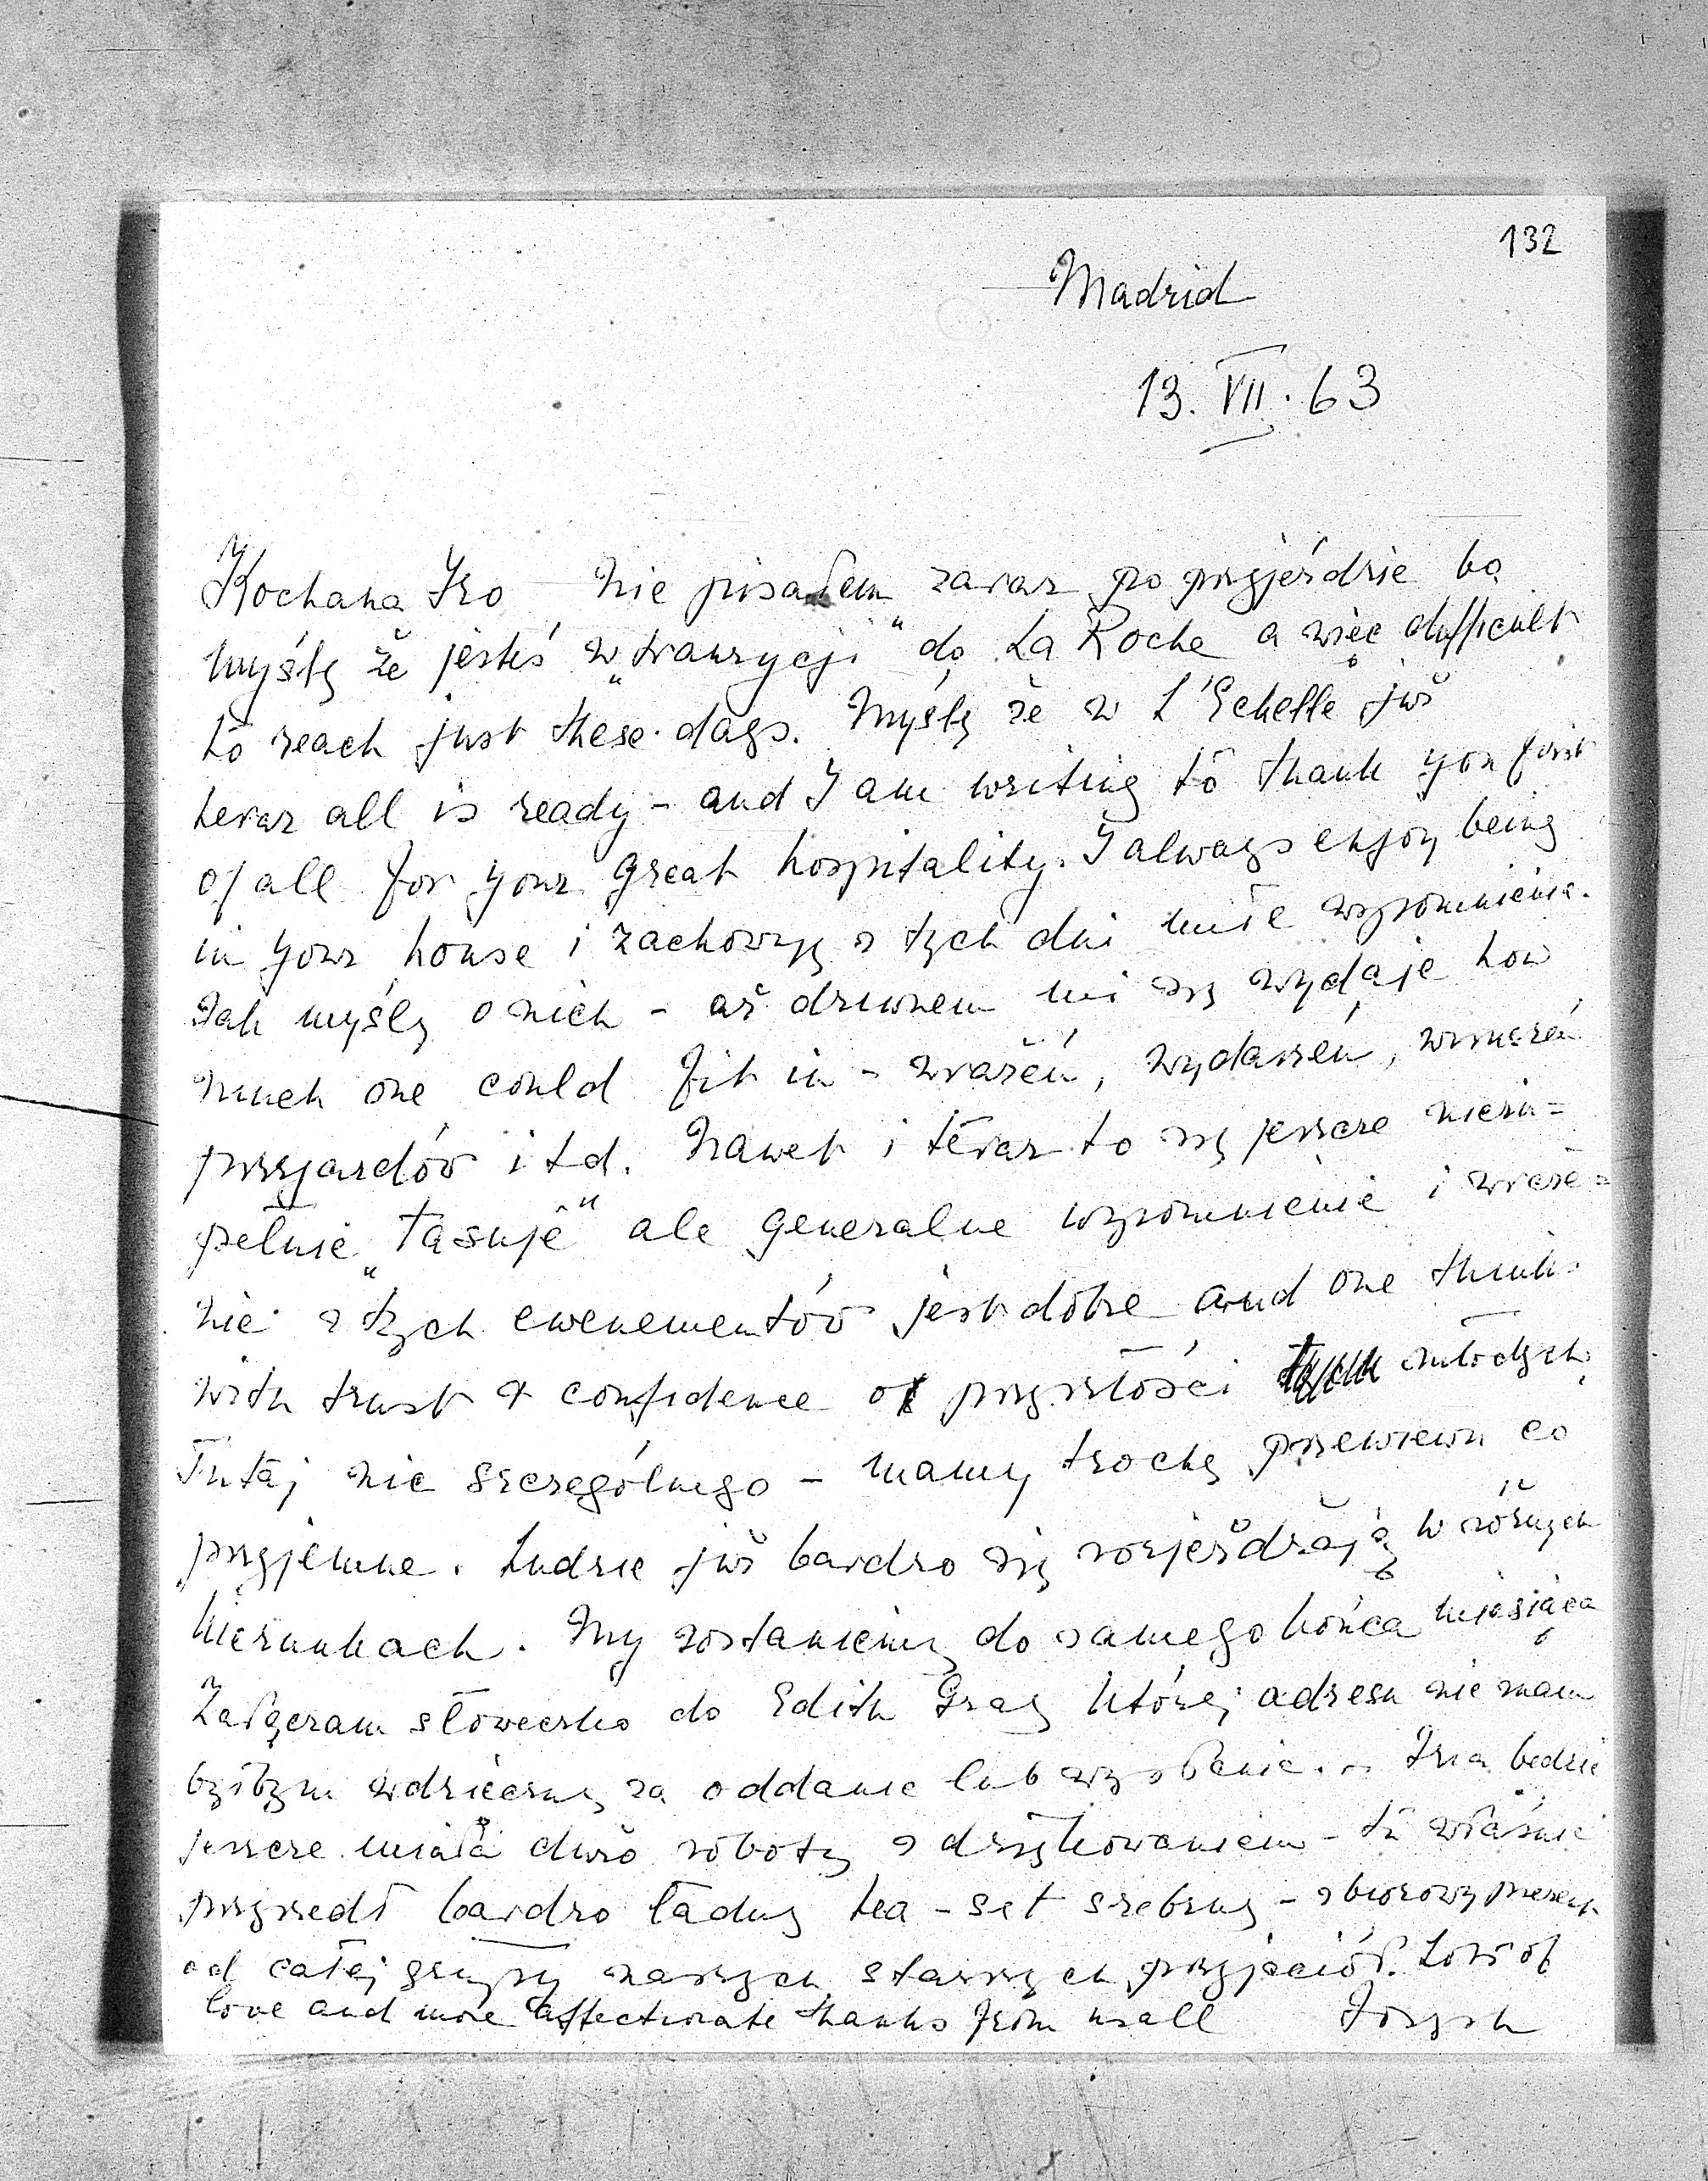 132
Madrid
13. VII. 63
Kochana Izo Nie pisałem zaraz po przyjeździe bo
myślę że jesteś w „tranzycji" do La Roche a więc difficult
to reach just these days. Myślę że w L'Echelle już
teraz all is ready - and I am writing to thank you first
of all for your great hospitality. I always enjoy being
in your house i zachowuję z tych dni miłe wspomnienia.
Jak myślę o nich - aż dziwnem mi się wydaje how
much one could fit in - wrażeń, wydarzeń, wzruszeń
przyjazdów itd. Nawet i teraz to się jeszcze niezu=
pełnie „tasuje" ale generalne wspomnienie i wraże=
nie z tych ewenementów jest dobre and one thinks
with trust & confidence o przyszłości młodych.
Tutaj nic szczególnego - mamy trochę przewiewu co
przyjemne. Ludzie już bardzo się rozjeżdżają w różnych
kierunkach. My zostaniemy do samego końca miesiąca
Załączam słóweczko do Edith Gray której adresu nie mam
byłbym wdzięczny za oddanie lub wysłanie. Iza będzie
jeszcze miała dużo roboty z dziękowaniem - tu właśnie
przyszedł bardzo ładny tea-set srebrny - zbiorowy prezent
od całej grupy naszych starszych przyjaciół. Lots of
love and more affectionate thanks from us all Józysh